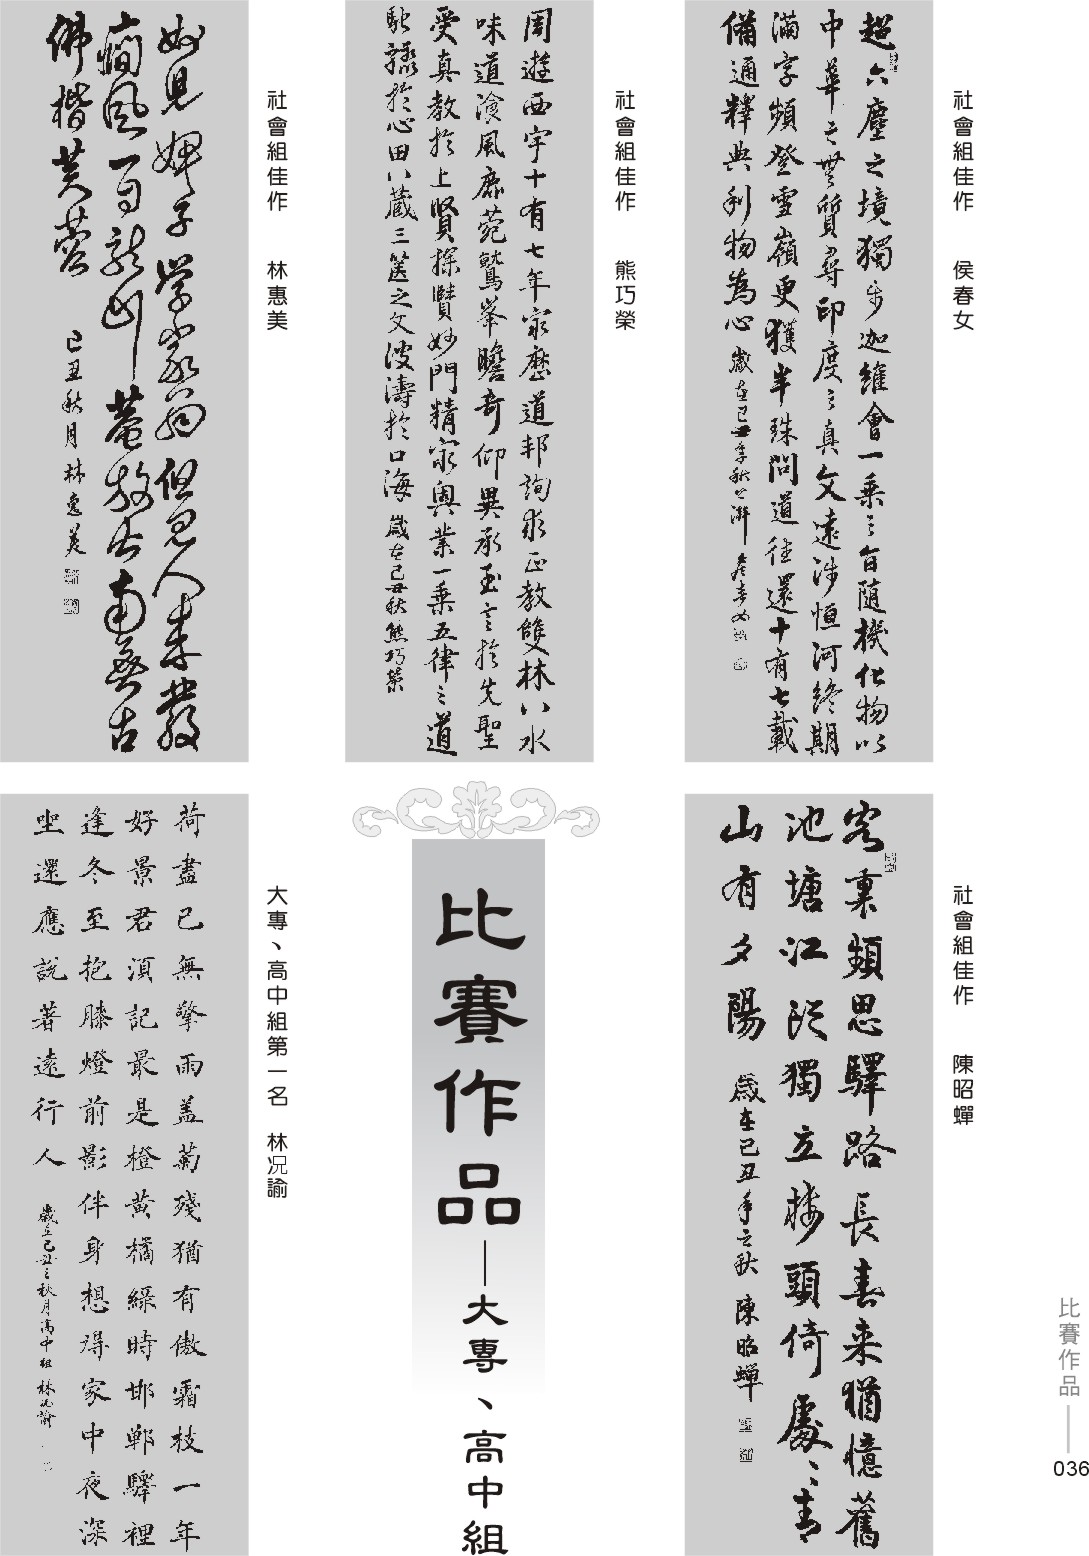 超六塵之境獨步迦維會一乘之旨隨機化物以
中華之無質尋印度之真文遠涉恒河終期
滿字頻登雪嶺更獲半珠問道往還十有七載
備通釋典利物為心 歲在己丑季秋
社會組佳作　侯春女
周遊西宇十有七年窮歷道邦詢求正教雙林八水
味道湌風鹿菀鷲峯瞻奇仰異承至言於先聖
受真教於上賢探賾妙門精窮奧業一乘五律之道
馳驟於心田八藏三篋之文波濤於口海 歲在己丑秋 熊巧榮
社會組佳作　熊巧榮
人來
南無古
佛楷 己丑秋月 林惠美
社會組佳作　林惠美
客裏頻思驛路長春來猶憶舊
池塘江
獨立樓頭倚處處青
山有夕陽 歲在己丑年之秋 陳昭蟬
社會組佳作　陳昭蟬
比賽作品——大專、高中組
荷盡已無擎雨盖菊殘猶有傲霜枝一年
好景君須記最是橙黃橘綠時邯鄲驛裡
逢冬至抱膝燈前影伴身想得家中夜深
坐還應說著遠行人 歲在己丑之秋月高中組 林况諭
大專、高中組第一名　林况諭
比賽作品——
036